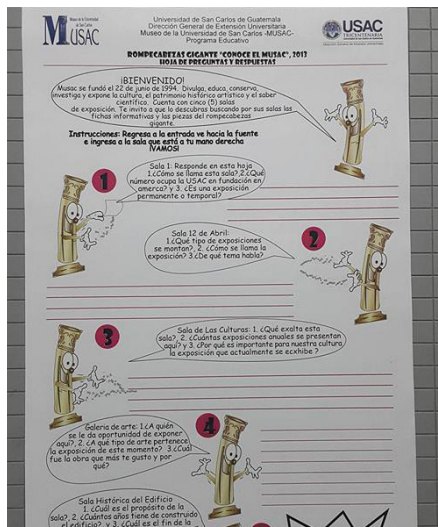 Museo de la Universidad
de San Carlos
MUSAC
Universidad de San Carlos de Guatemala
Dirección General de Extensión Universitaria
Museo de la Universidad de San Carlos -MUSAC-
Programa Educativo
USAC
TRICENTENARIA
ROMPECABEZAS GIGANTE "CONOCE EL MUSAC", 2013
HOJA DE PREGUNTAS Y RESPUESTAS
¡BIENVENIDO!
Musac se fundó el 22 de junio de 1994. Divulga, educa, conserva,
investiga y expone la cultura, el patrimonio histórico artístico y el saber
científico. Cuenta con cinco (5) salas
de exposición. Te invito a que lo descubras buscando por sus salas las
fichas informativas y las piezas del rompecabezas
gigante.
Instrucciones: Regresa a la entrada ve hacia la fuente
e ingresa a la sala que está a tu mano derecha
¡VAMOS!
Sala 1: Responde en esta hoja
1.¿Cómo se llama esta sala? 2.¿Qué
número ocupa la USAC en fundación en
amerca? y 3. ¿Es una exposición
permanente o temporal?
1
Sala 12 de Abril:
1.¿Qué tipo de exposiciones
se montan?, 2. ¿Cómo se llama la
exposición? 3.¿De qué tema habla?
2
3
Sala de Las Culturas: 1. ¿Qué exalta esta
sala?, 2. ¿Cuántas exposiciones anuales se presentan
aquí? y 3. ¿Por qué es importante para nuestra cultura
la exposición que actualmente se ecxhibe ?
Galeria de arte: 1.¿A quién
se le da oportunidad de exponer
aquí?, 2. ¿A qué tipo de arte pertenece
la exposición de este momento? 3.¿Cuál
fue la obra que más te gusto y por
qué?
4
Sala Histórico del Edificio
1. ¿Cuál es el propósito de la
sala?, 2. ¿Cuántos años tiene de construido
el edificio?, y 3. ¿Cuál es el fin de la